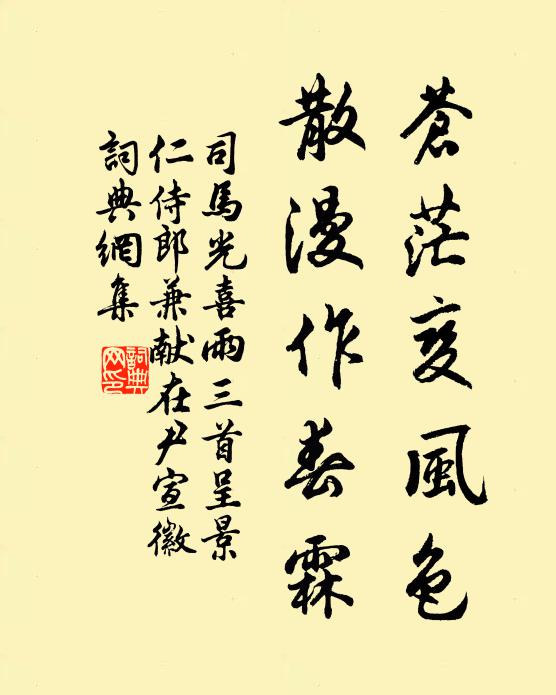 蒼茫变風色
散漫作春霖
司馬光喜雨三首呈景
仁侍郎兼献在尹宣徽
詞典網集
詞典網印